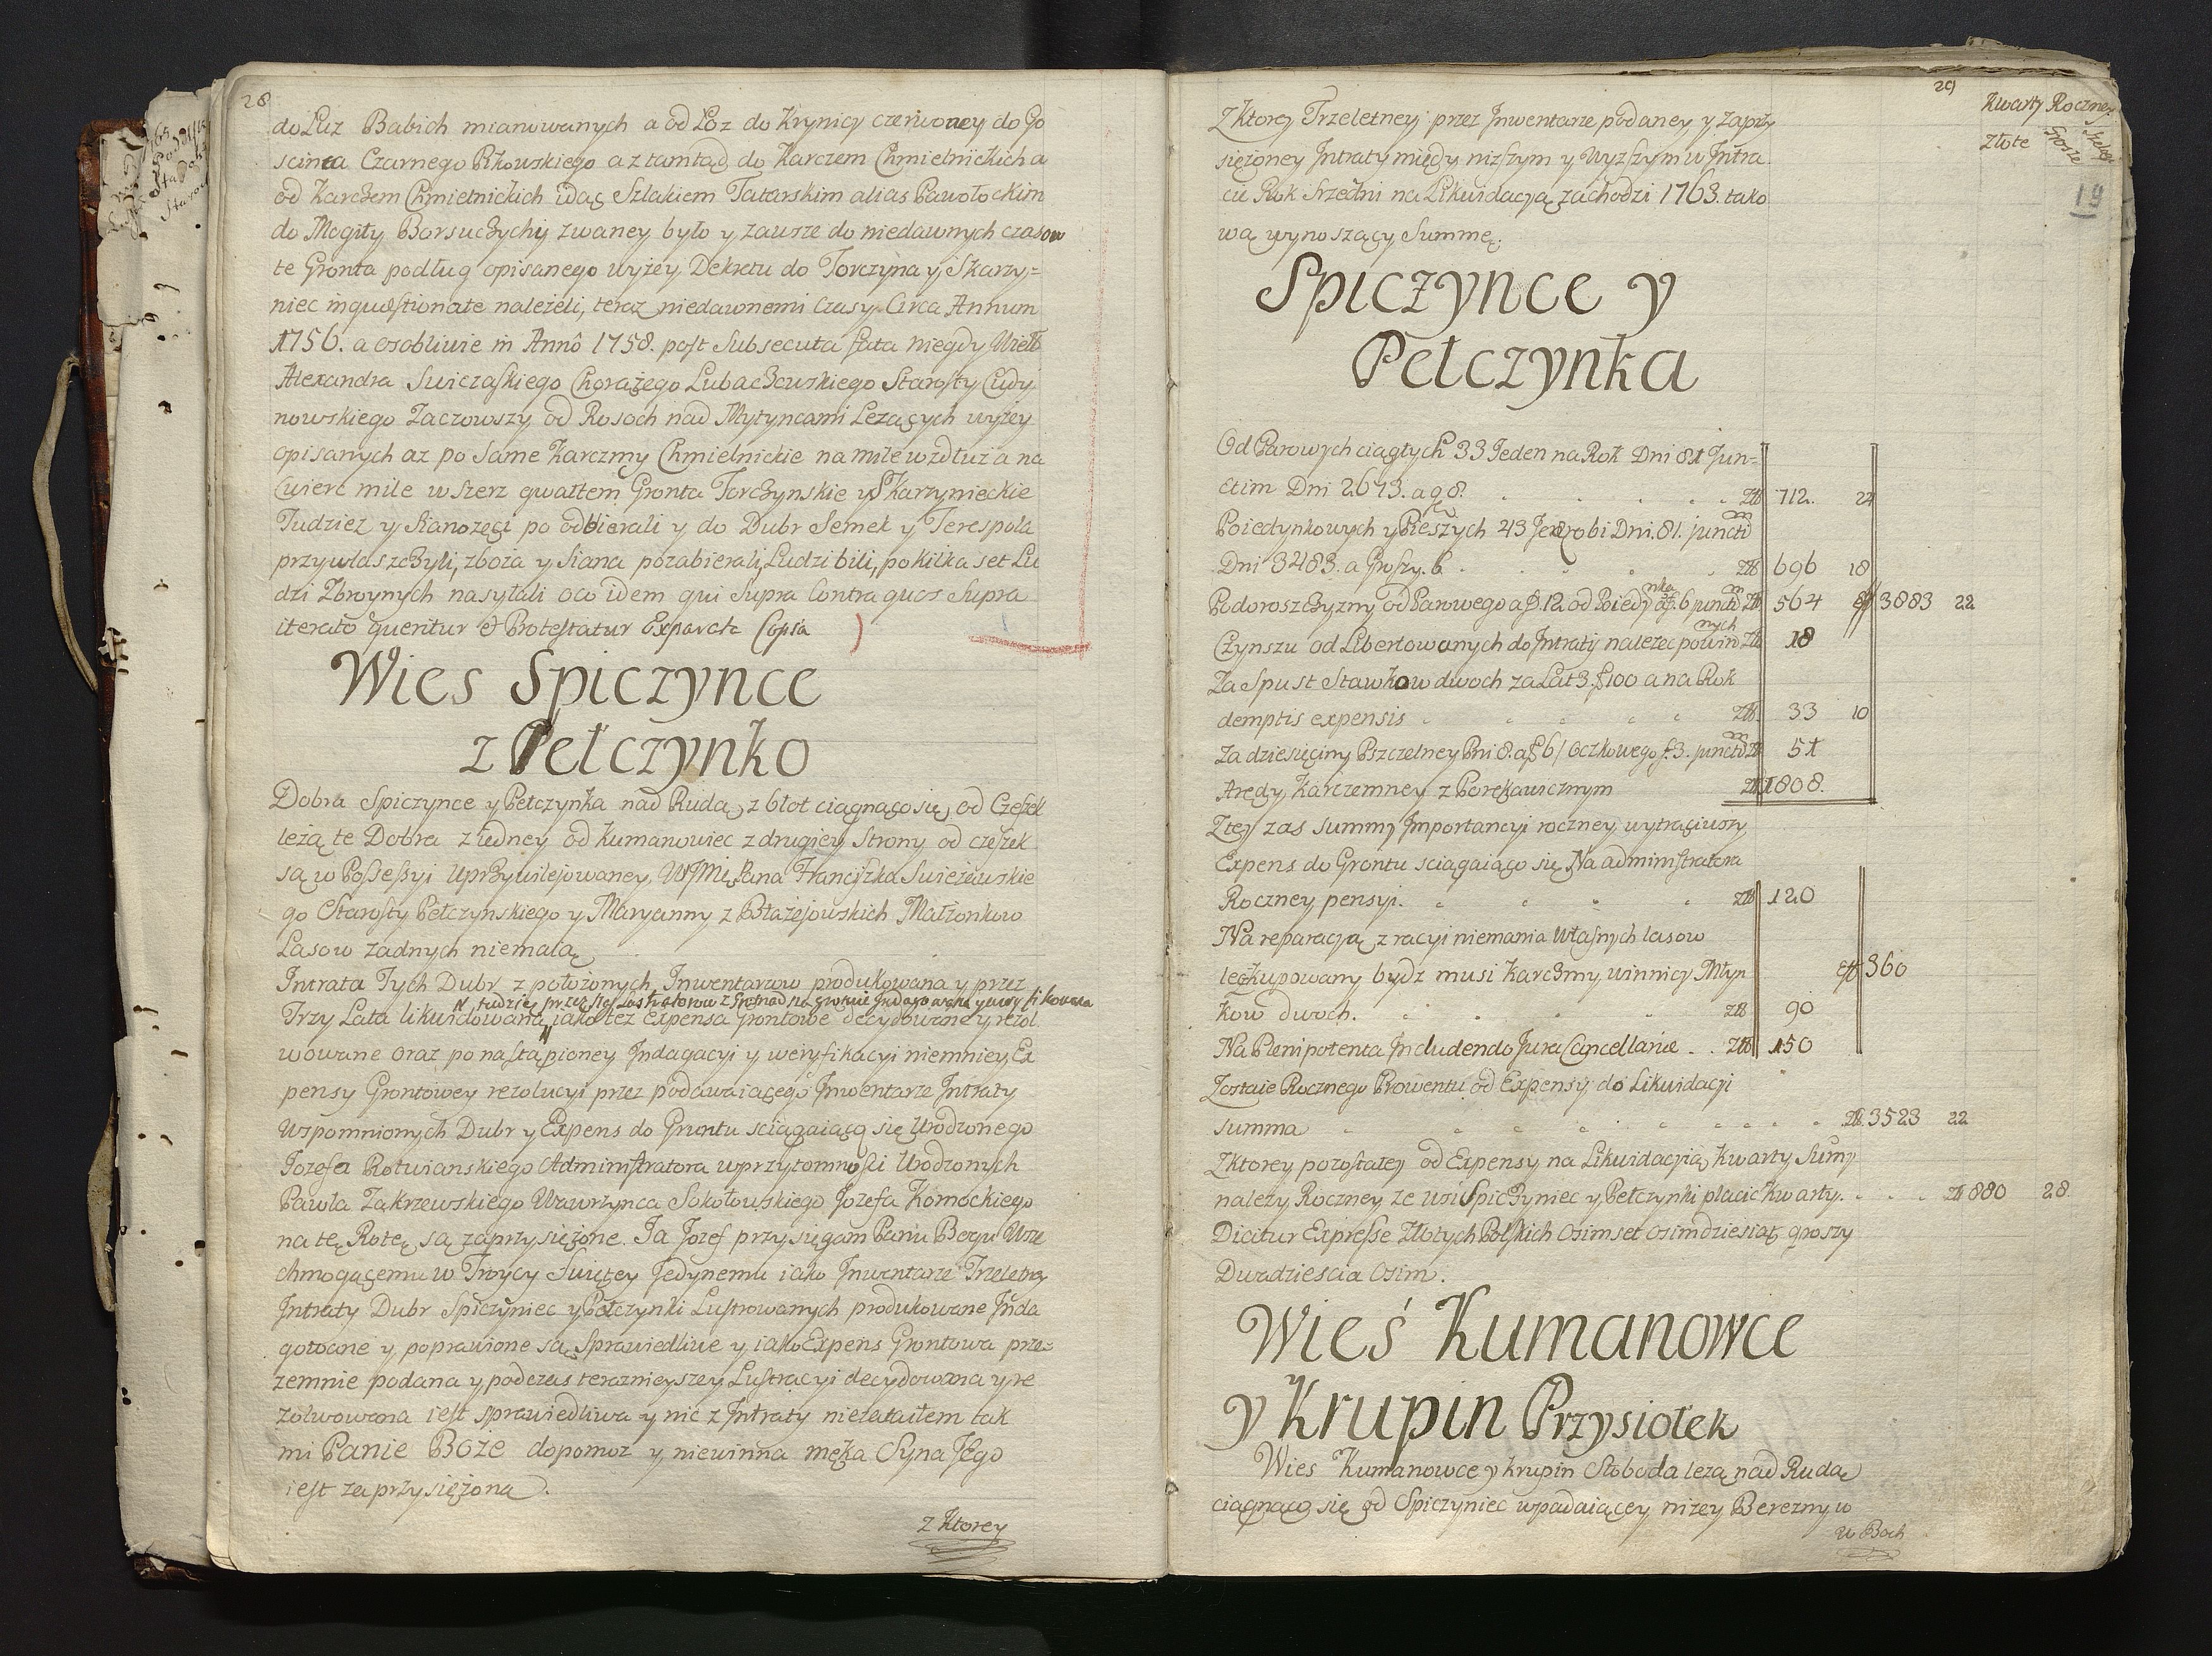 28
do Łuz Babich mianowanych a od Łoz do Krynicy czerwoney do Go
scinca Czarnego Pikowskiego a z tamtąd do Karczem Chmielnickich a
od Karczem Chmielnickich idąc Szlakiem Tatarskim alias Pawołockim
do Mogiły Borsuczychy zwaney było y zawsze do niedawnych czasow
te Gronta podług opisanego wyżey Dekretu do Torczyna y Skarzy=
niec inquestionate należeli, teraz niedawnemi Czasy Circa Annum
1756. a osobliwie in Annô 1758. post Subsecuta fata niegdy Wielb
Alexandra Swiczaskiego Chorążego Lubaczowskiego Starosty Cudy
nowskiego Zaczowszy od Rosoch nad Mytyncami Leżących wyżey
opisanych aż po same Karczmy Chmielnickie na mile wzdłuż a na
Cwierć mile w szerz gwałtem Gronta Torczynskie y Skarzynieckie
Tudziez y Sianozęci po odbierali y do Dubr Semek y Terespola
przywłaszczyli, zboża y Siana pozabierali, Ludzi bili, po kilka set Lu
dzi Zbroynych nasyłali oco idem qui Supra Contra quos Supra
iterato queritur et Protestatur Exparch Copia )
Wies Spiczynce
z Pełczynko
Dobra Spiczynce y Pełczynka nad Rudą z błot ciągnąco się od Czesek
leżą te Dobra z iedney od Kumanowiec z drugiey Strony od czeszek
są w Possessyi Uprzywilejowaney, WJMię Pana Franciszka Swieżewskie
go Starosty Pełczynskiego y Maryanny z Błażejowskich Małżonkow
Lasow żadnych niemałą
Intrata Tych Dubr z położonych Inwentarzow produkowana y przez
tudziez przez Lustratorow z Gromad na gruncie Indagowana y weryfikowana
Trzy Lata likwidowana iako też Expensa Grontowe decydowane y rezol
wowane oraz po nastąpioney Indagacyi y weryfikacyi niemniey Ex
pensy Grontowey rezolucyi przez podawaiącego Inwentarze Intraty
Wspomnionych Dubr y Expens do Gruntu sciągaiącą się Urodzonego
Jozefa Rotwianskiego Administratora w przytomności Urodzonych
Pawła Zakrzewskiego Wawrzynca Sokołowskiego Jozefa Komockiego
na tę Rotę są zaprzysiężone. Ja Jozef przysięgam Panu Bogu Wsze
chmogącemu w Troycy Swiętey Jedynemu iako Inwentarze Trzeletney
Intraty Dubr Spiczyniec y Pełczynki Lustrowanych produkowane Inda
gowane y poprawione są Sprawiedliwe y iako Expens Grontowa prze=
zemnie podana y podczas teraznieyszey Lustracyi decydowana y re
zolwowana iest sprawiedliwa y nic z Intraty niezataiłem tak
mi Panie Boże dopomoz y niewinna męka Syna Jego
iest zaprzysiężona.
z Ktorey
29
Kwarty Roczney
Złote Grosze Szelągi
19
Z Ktorey Trzeletney przez Inwentarze podaney y zaprzy
siężoney Intraty między niższym y wyższym w Intra
cie Rok Srzedni na Likwidacyą zachodzi 1763. tako
wą wynoszący Summę.
Spiczynce y
Pełczynka
Od Parowych ciągłych 33 Jeden na Rok Dni 81 Jun=
ctim Dni 2673. a g 8. Zł 712. 24
Poiedynkowych y Pieszych 43 Jeden robi Dni. 81. junctim
Dni 3483. a Groszy. 6 Zł 696 18
Podoroszczyzny od Parowego a f. 12 od Poiedynka a f. 6 junctim Zł 564 eff 3883 22
Czynszu od Libertowanych do Intraty należec powinnych Zł 18
Za Spust Stawkow dwoch za Lat 3. f 100 a na Rok
demptis expensis Zł 33 10
Za dziesięciny Pszczelney Pni 8. a f 6 / Oczkowego f. 3. junctim Zł 51
Arędy Karczemney z Porękawicznym Zł 1808.
Z tey zas summy Importancyi roczney wytrąciwszy
Expens do Grontu sciągaiąco się Na administratora
Roczney pensyi. Zł 120
Na reparacyą z racyi niemania własnych lasow
lecz kupowany bydz musi Karczmy winnicy Młyn eff 360
kow dwoch. Zł 90
Na Plenipotenta Includendo Jura Cancellariæ Zł 150
Zostaie Rocznego Prowentu od Expensy do Likwidacyi
summa Zł 3523 22
Z Ktorey pozostałey od Expensy na Likwidacyią Kwarty Sumy
należy Roczney ze wsi Spiczyniec y Pełczynki płacić Kwarty. Zł 880 28
Dicitur Expresse Złotych Polskich Osimset Osimdziesiąt groszy
Dwadziescia Osim.
Wieś Kumanowce
y Krupin Przysiołek
Wies Kumanowce y Krupin Słoboda leżą nad Rudą
ciągnąco się od Spiczyniec wpadaiącey niżey Berezny w
w Boh